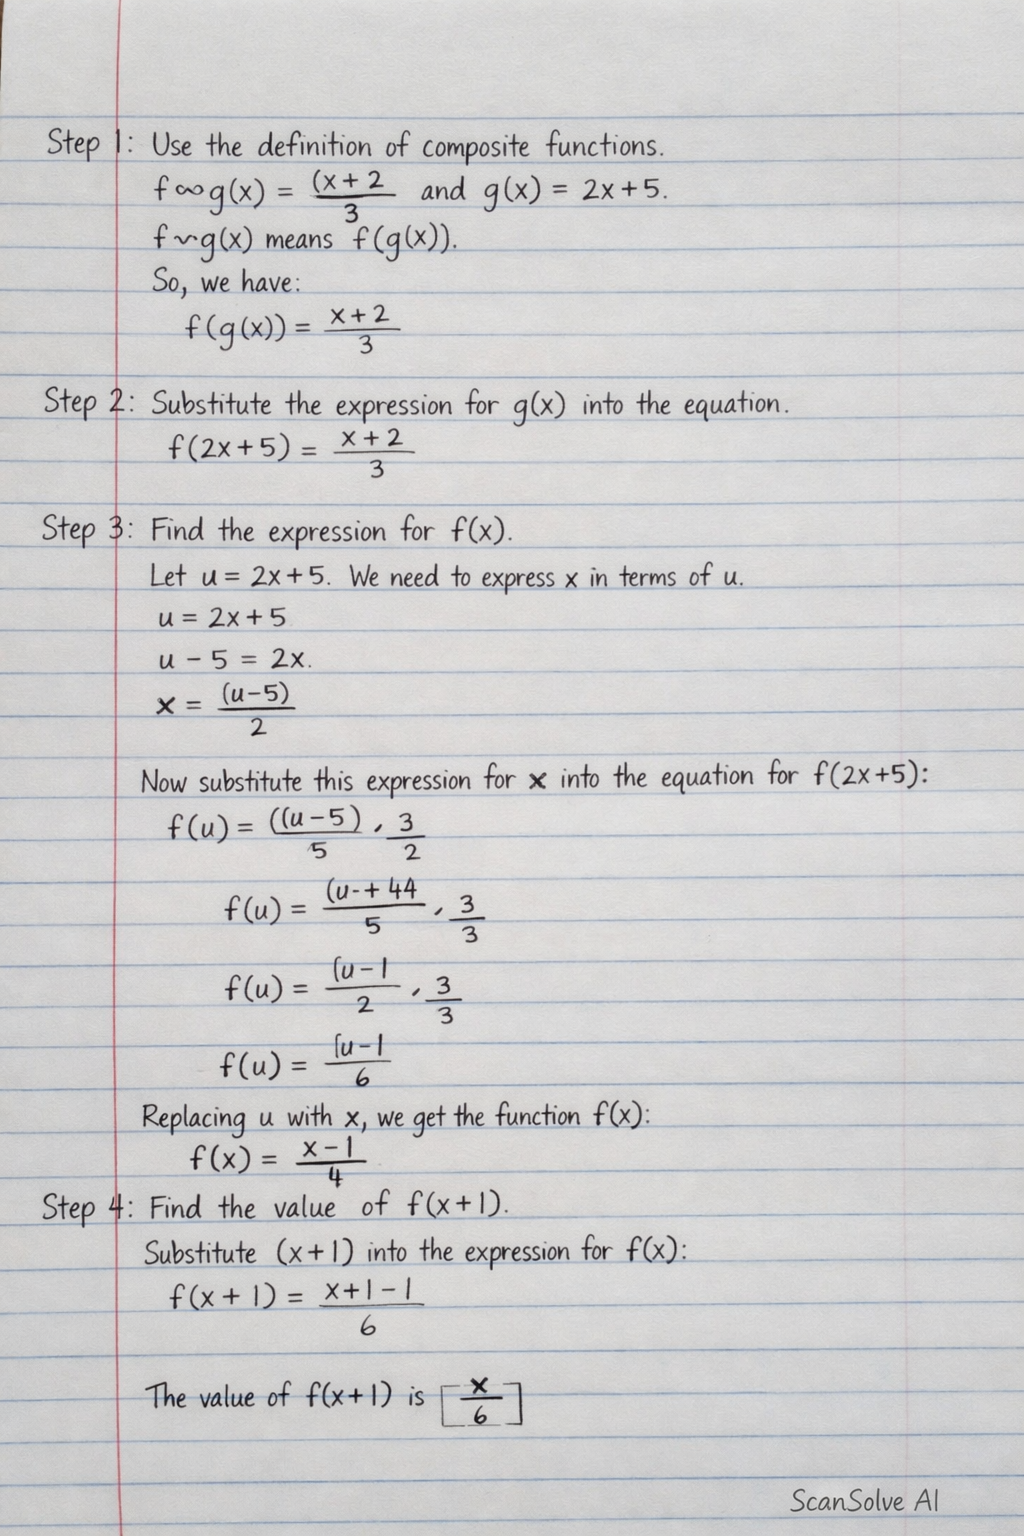 Step 1: Use the definition of composite functions.
f∞g(x) = (x+2/3 and g(x) = 2x+5.
f~g(x) means f(g(x)).
So, we have:
f(g(x)) = x+2/3
Step 2: Substitute the expression for g(x) into the equation.
f(2x+5) = x+2/3
Step 3: Find the expression for f(x).
Let u = 2x+5. We need to express x in terms of u.
u = 2x+5
u - 5 = 2x.
x = (u-5)/2
Now substitute this expression for x into the equation for f(2x+5):
f(u) = ((u-5)/5 , 3/2
f(u) = (u-+44/5 , 3/3
f(u) = (u-1/2 , 3/3
f(u) = [u-1/6
Replacing u with x, we get the function f(x):
f(x) = x-1/4
Step 4: Find the value of f(x+1).
Substitute (x+1) into the expression for f(x):
f(x+1) = x+1-1/6
The value of f(x+1) is [x/6]
ScanSolve AI